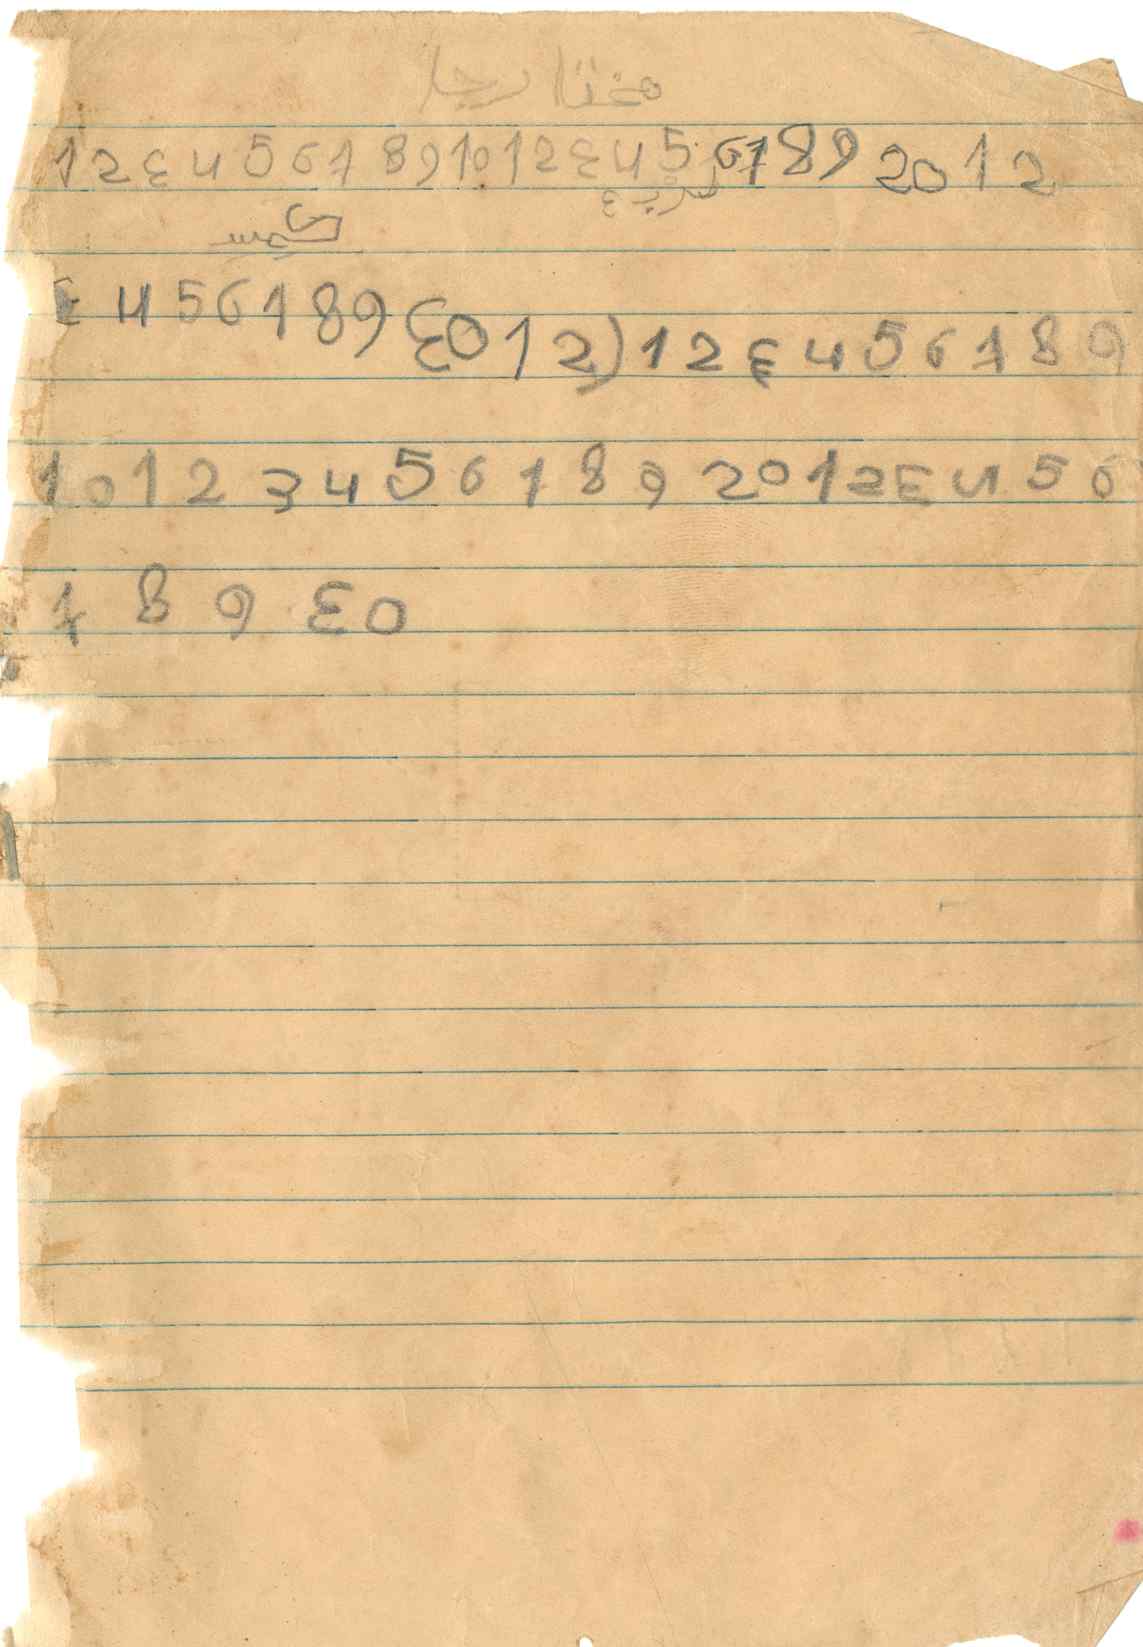 1 2 3 4 5 6 7 8 9 10 1 2 3 4 5 6 7 8 9 20 1 2
3 4 5 6 7 8 9 30 1 2) 1 2 3 4 5 6 7 8 9
10 1 2 3 4 5 6 7 8 9 20 1 2 3 4 5 6
7 8 9 30